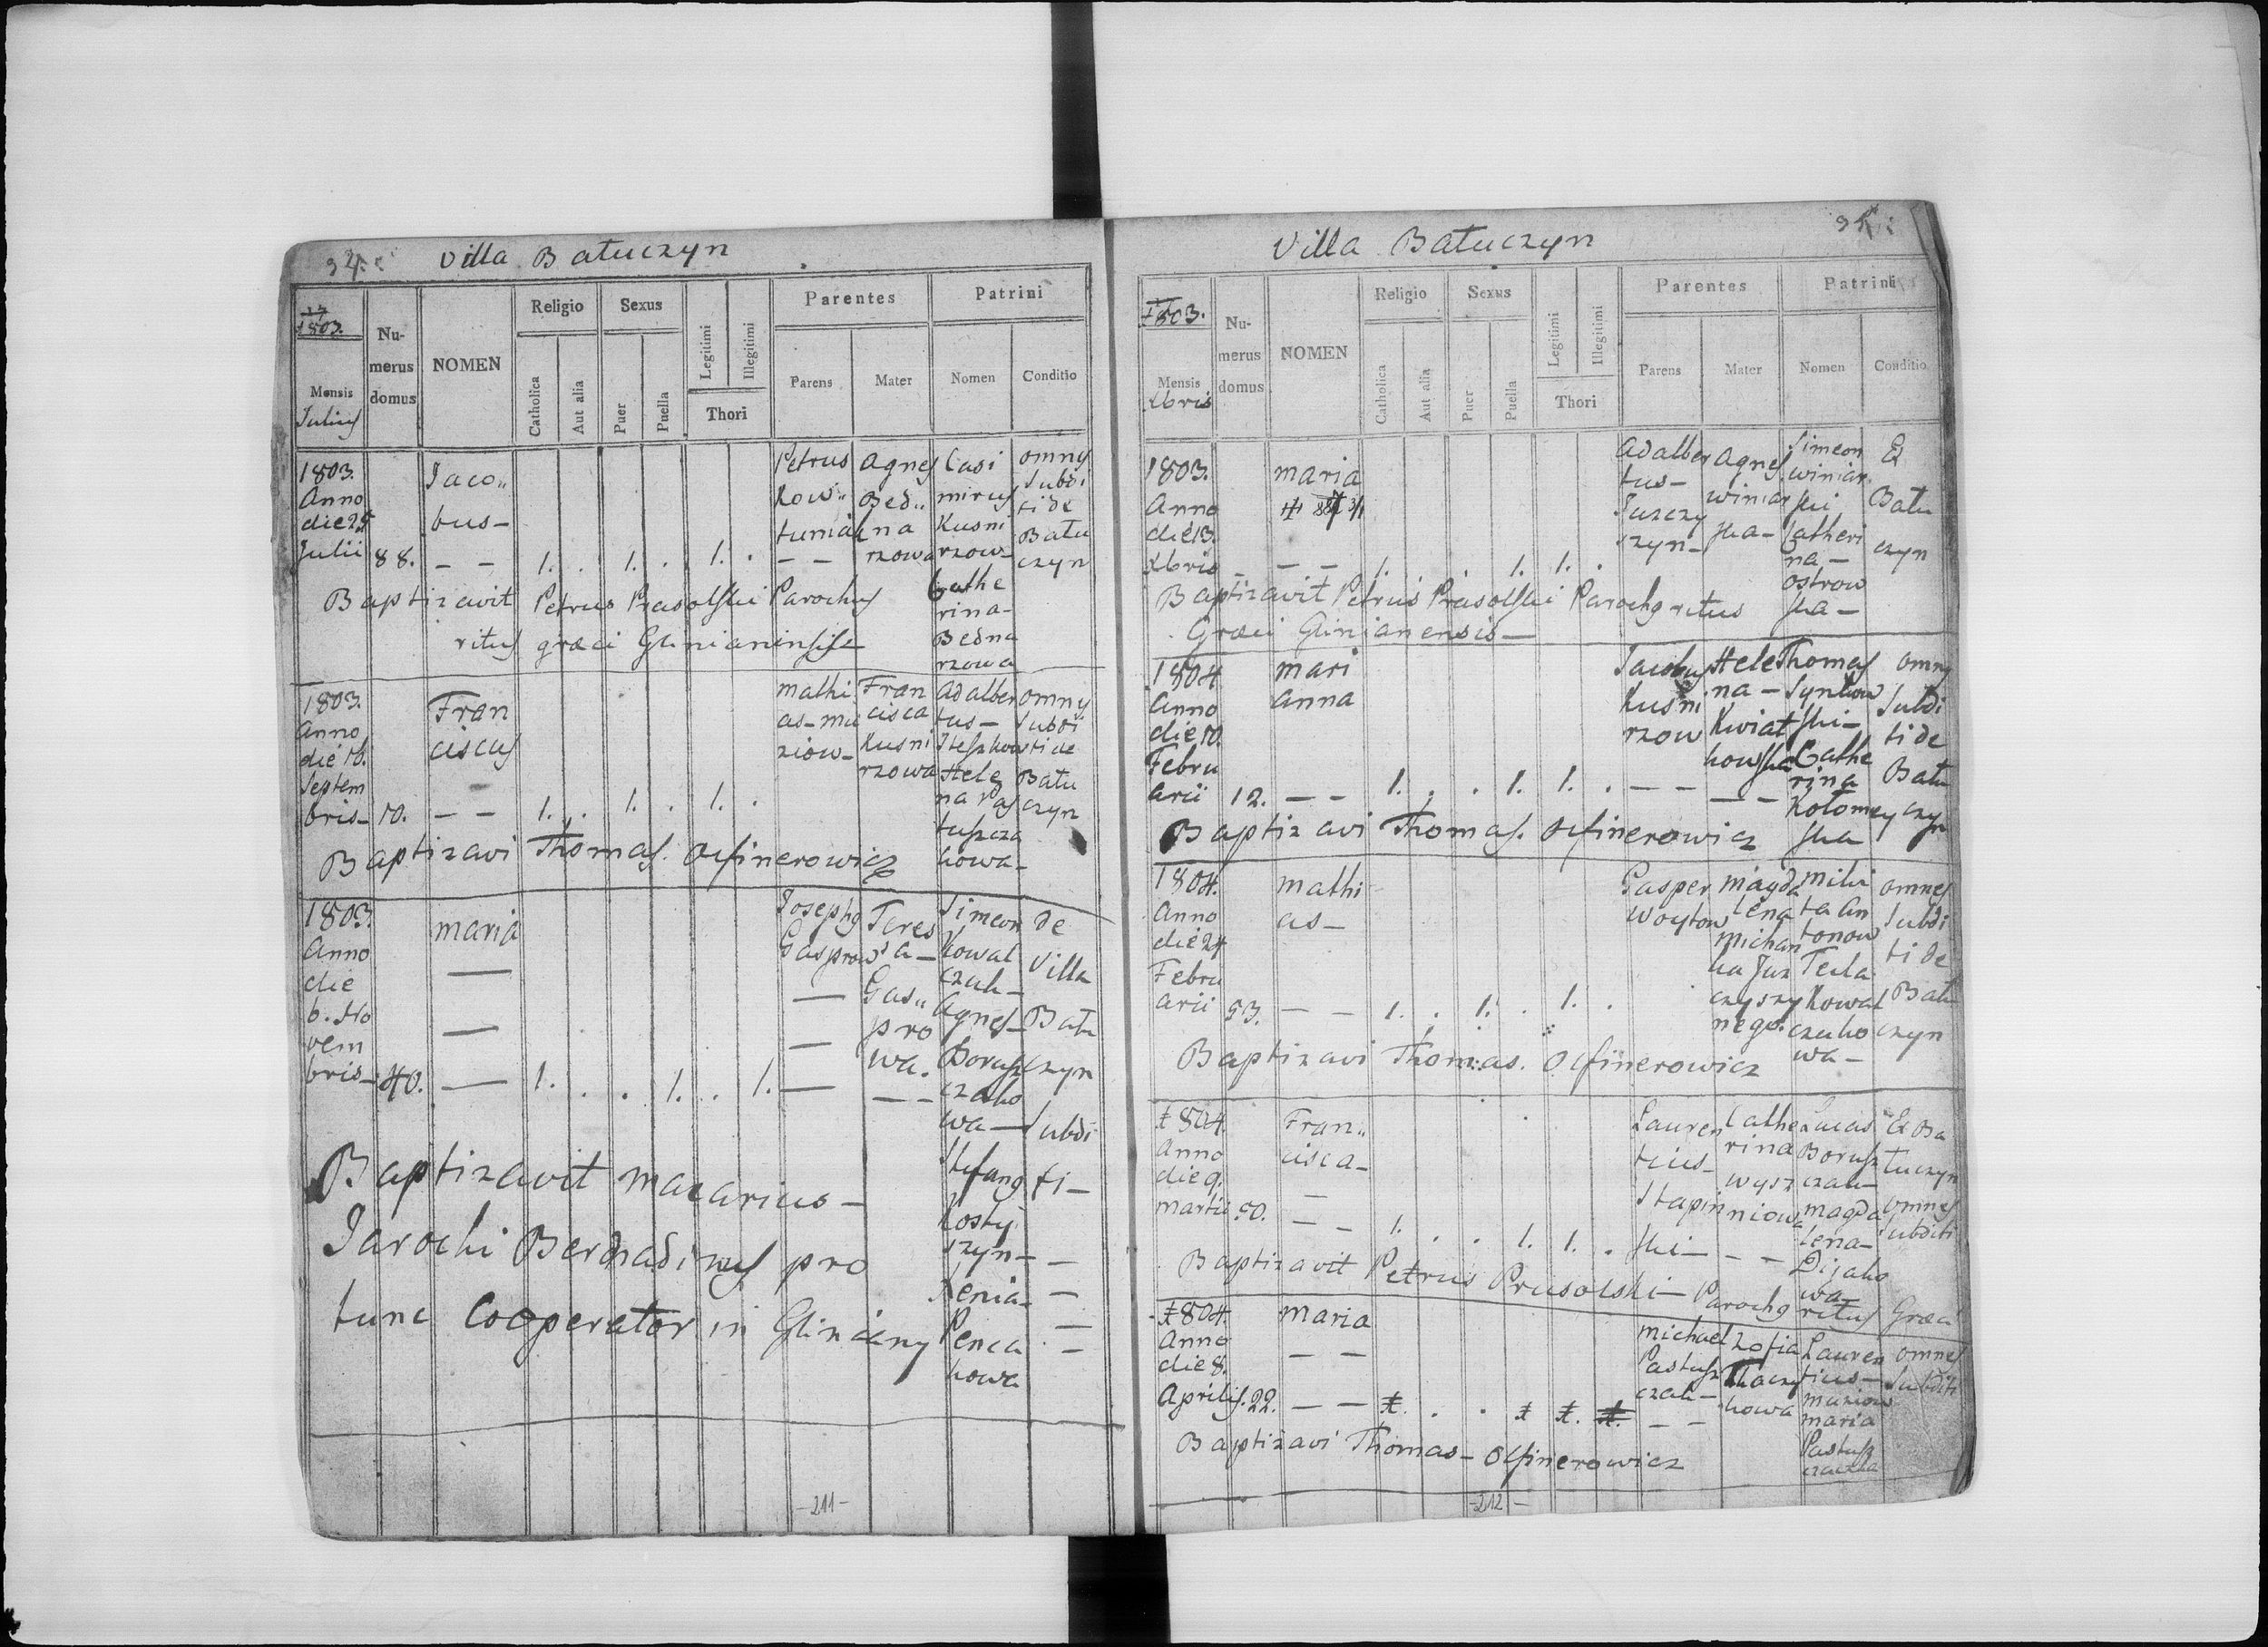 34.
Villa Batuczyn
1803.
Mensis
Julius
Nu-
merus
domus
NOMEN
Religio
Catholica
Aut alia
Sexus
Puer
Puella
Legitimi
Illegitimi
Thori
Parentes
Parens
Mater
Patrini
Nomen
Conditio
1803.
Anno
die 25
Julii
88.
Jaco„
bus –
– –
1. . 1. . 1. .
Petrus
Kow„
tuniak
– –
Agnes
Bed„
na
rzowa
Casi
mirus
Kusni
rzow –
Cathe
rina –
Bedna
rzowa
omny
Subdi
ti de
Batu
czyn
Baptizavit Petrus Prasolski Parochus
ritus græci Glinianinsis
1803.
Anno
die 18.
Septem
bris –
10.
Fran
ciscus
–
– –
1. . 1. . 1. .
Mathi
as – Mu
ziow –
Fran
cisca
Kusni
rzowa
Adalber
tus –
Steszkow
Hele
na Pas
tuszcza
kowa –
omny
Subdi
ti de
Batu
czyn
Baptizavi Thomas. Olfinerowicz
1803.
Anno
die
6. No
vem
bris –
40.
Maria
—
—
—
1. . . 1. . 1.
Josephg
Gasprow
—
—
—
Teres
sa –
Gas„
pro
wa.
– –
Simeon
Kowal
czuk –
Agnes –
Borusz
czako
wa –
Stefang
Kosty
szyn –
Xenia –
Penca
kowa
de
Villa
Batu
czyn
Subdi
ti –
–
–
–
–
Baptizavit Macarius –
Jarochi Bernadinus pro
tunc Cooperator in Gliniany
– 211 –
35
Villa Batuczyn
1803.
Mensis
Xbris
Nu-
merus
domus
NOMEN
Religio
Catholica
Aut alia
Sexus
Puer
Puella
Legitimi
Illegitimi
Thori
Parentes
Parens
Mater
Patrini
Nomen
Conditio
1803.
Anno
die 13.
Xbris
–
Maria
– –
1. . . 1. 1. .
Adalber
tus –
Juszczy
szyn –
Agnes
winiar
ska –
Simeon
winiar
ski
Catheri
na –
ostrow
ska –
Ex
Batu
czyn
Baptizavit Petrus Prasolski Parochg ritus
Græci Glinianensis –
1804
Anno
die 10.
Febru
arii
12.
Mari
anna
– –
1. . . 1. 1. .
Jacobus
Kusni
rzow
– –
Hele
na –
Kwiat
kowska
– –
Thomas
Synkow
ski –
Cathe
rina
Kołomey
ska
omny
Subdi
ti de
Batu
czyn
Baptizavi Thomas. Olfinerowicz
1804.
Anno
die 24
Febru
arii
53.
Mathi
as –
– –
1. . 1. . 1. .
Gasper
Woytow
Magda
lena
Michan
ka Jus
czyszy
nego.
Miki
ta An
tonow
Tecla
Kowal
czuko
wa –
omnes
Subdi
ti de
Batu
czyn
Baptizavi Thomas. Olfinerowicz
1804.
Anno
die 9.
Martii
50.
Fran„
cisca –
–
– –
1. . . 1. 1. .
Lauren
tius –
Stapin
ski –
Cathe
rina
wysz
niowa
– –
Lucas
Borusz
czak –
Magda
lena –
Dijako
wa –
Ex Ba
tuczyn
omnes
Subditi
Baptizavit Petrus Prusolski – Parochg ritus Græci
1804.
Anno
die 8.
Aprilis.
22.
Maria
– –
– –
1. . . 1 1. 1.
Michael
Pastusz
czak –
– –
Zofia
Tkaczy
kowa
Lauren
tius –
Muziow
Maria
Pastusz
czuczka
omnes
Subditi
Baptizavi Thomas – Olfinerowicz
– 212 –